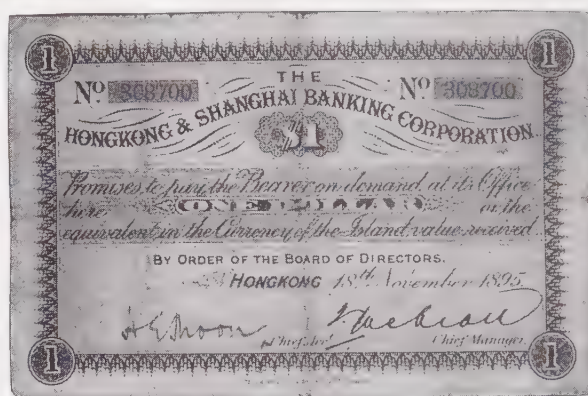 1 1
THE
Nº 308700 Nº 308700
HONGKONG & SHANGHAI BANKING CORPORATION.
$1
Promises to pay the Bearer on demand at its Office
here ONE DOLLAR or the
equivalent in the Currency of the Island, value received.
BY ORDER OF THE BOARD OF DIRECTORS.
HONGKONG 18th November 1895
Chief Manager.
1 1